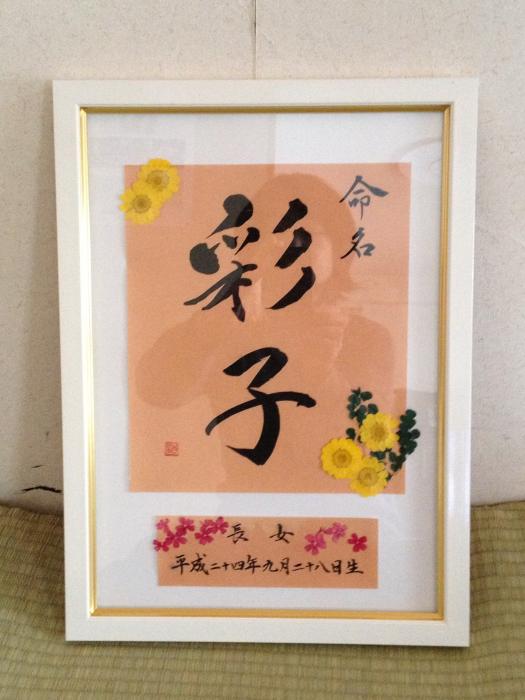 命名
彩子
長女
平成二十四年九月二十八日生